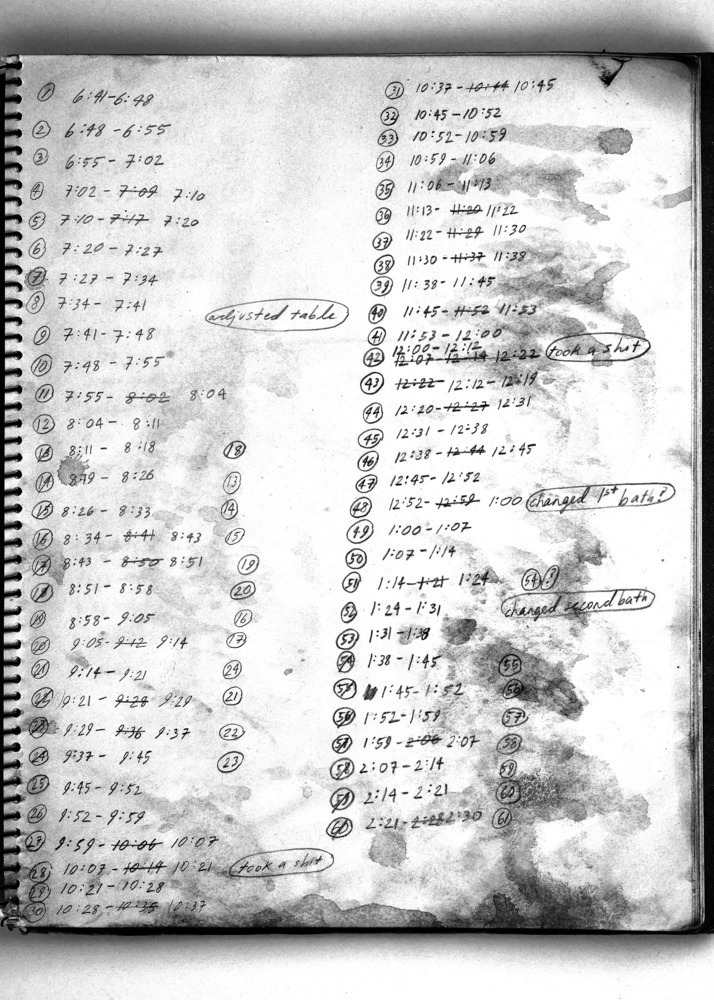 1 6:41-6:48
2 6:48-6:55
3 6:55-7:02
4 7:02-7:09 7:10
5 7:10-7:17 7:20
6 7:20-7:27
7 7:27-7:34
8 7:34-7:41
adjusted table
9 7:41-7:48
10 7:48-7:55
11 7:55-8:02 8:04
12 8:04-8:11
13 8:11-8:18 18
14 8:19-8:26 13
15 8:26-8:33 14
16 8:34-8:41 8:43 15
17 8:43-8:50 8:51 19
18 8:51-8:58 20
19 8:58-9:05 16
20 9:05-9:12 9:14 17
21 9:14-9:21 24
22 9:21-9:28 9:29 21
23 9:29-9:36 9:37 22
24 9:37-9:45 23
25 9:45-9:52
26 9:52-9:59
27 9:59-10:06 10:07
28 10:07-10:14 10:21 took a shit
29 10:21-10:28
30 10:28-10:35 10:37
31 10:37-10:44 10:45
32 10:45-10:52
33 10:52-10:59
34 10:59-11:06
35 11:06-11:13
36 11:13-11:20 11:22
37 11:22-11:29 11:30
38 11:30-11:37 11:38
39 11:38-11:45
40 11:45-11:52 11:53
41 11:53-12:00
12:00-12:12
42 12:07-12:14 12:22 took a shit
43 12:22- 12:12-12:19
44 12:20-12:27 12:31
45 12:31-12:38
46 12:38-12:44 12:45
47 12:45-12:52
48 12:52-12:59 1:00 changed 1st bath?
49 1:00-1:07
50 1:07-1:14
51 1:14-1:21 1:24 54?
changed second bath
52 1:24-1:31
53 1:31-1:38
54 1:38-1:45 55
55 1:45-1:52 56
56 1:52-1:59 57
57 1:59-2:06 2:07 58
58 2:07-2:14 59
59 2:14-2:21 60
60 2:21-2:28 2:30 61